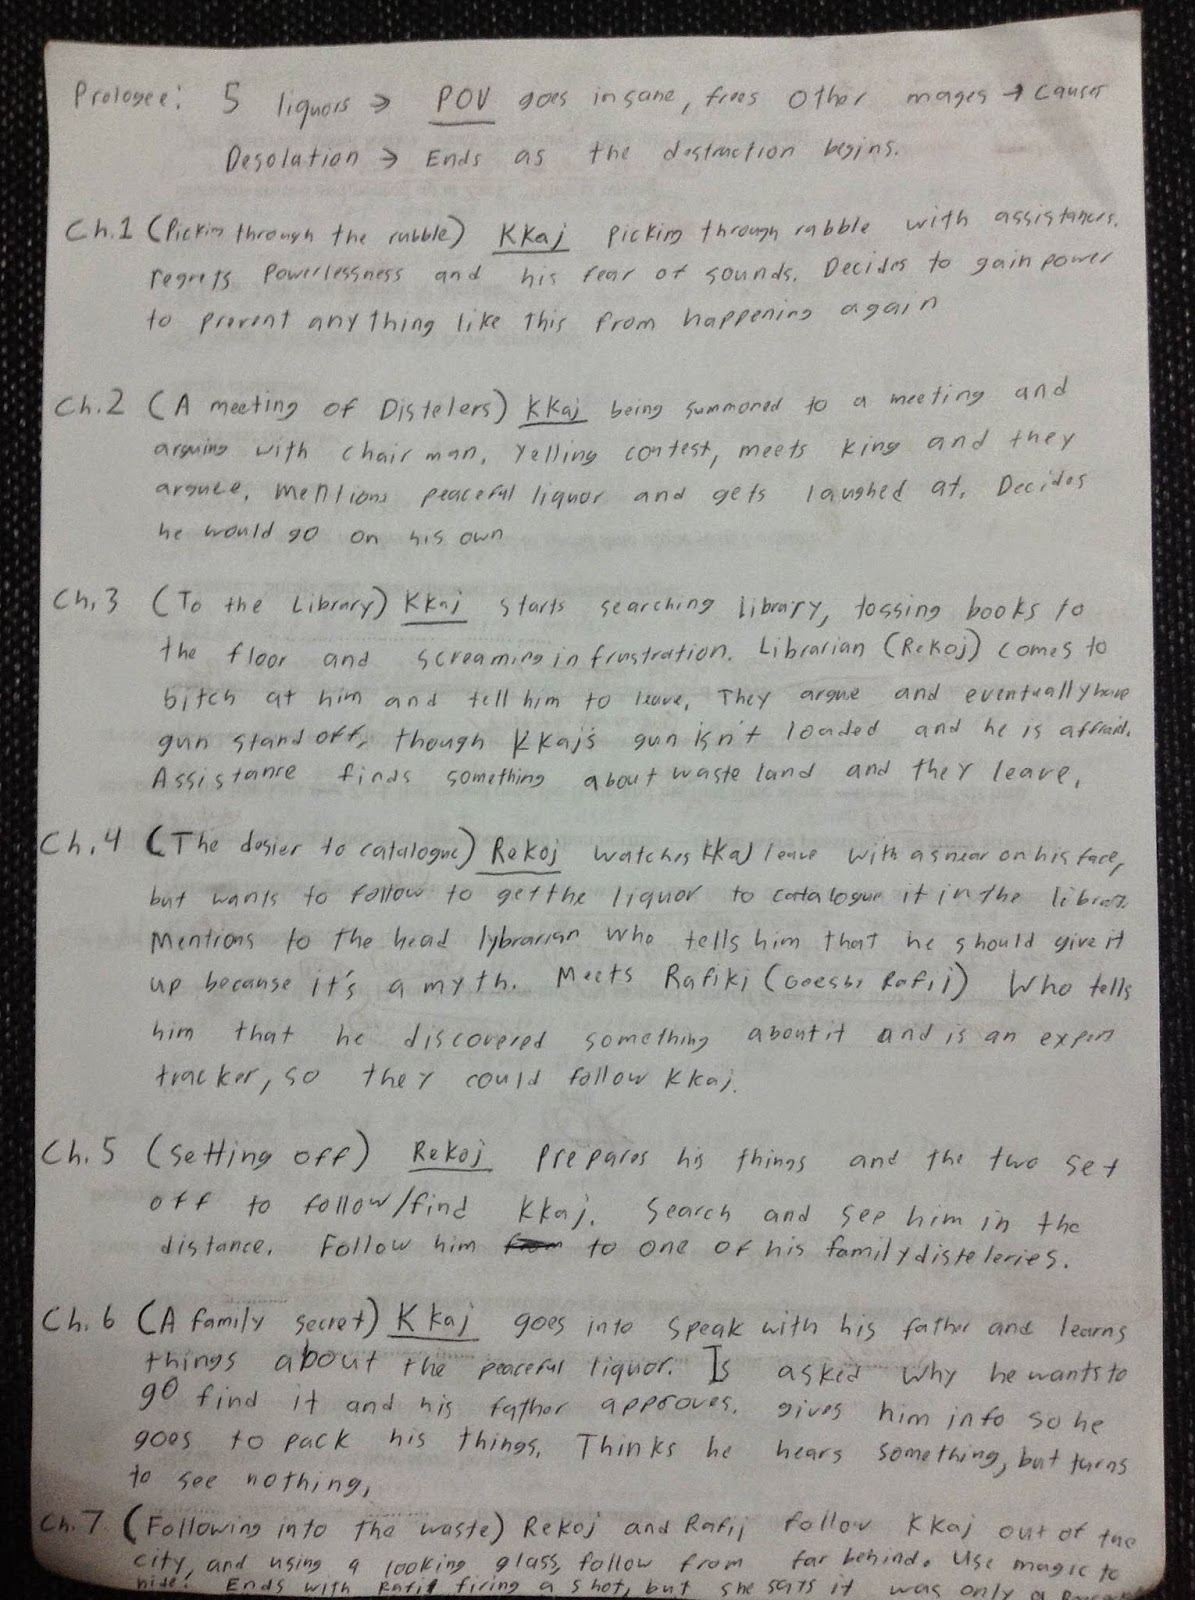 Prologee: 5 liquors → POV goes insane, frees other mages → causes
Desolation → Ends as the destruction begins.
Ch.1 (Picking through the rubble) KKaj picking through rabble with assistances.
regrets powerlessness and his fear of sounds. Decides to gain power
to prevent anything like this from happening again
Ch.2 (A meeting of Distelers) KKaj being summoned to a meeting and
arguing with chairman. Yelling contest, meets king and they
arguee. mentions peaceful liquor and gets laughed at. Decides
he would go on his own
Ch.3 (To the Library) KKaj starts searching library, tossing books to
the floor and screaming in frustration. Librarian (Rekoj) comes to
bitch at him and tell him to leave. They argue and eventually have
gun stand off, though KKaj's gun isn't loaded and he is affraid.
Assistanre finds something about waste land and they leave.
Ch.4 (The desier to catalogue) Rekoj watches KKaj leave with a snear on his face,
but wants to follow to get the liquor to catalogue it in the
Mentions to the head lybrarian who tells him that he should give it
up because it's a myth. Meets Rafikj (Goes by Rafij) Who tells
him that he discovered something about it and is an expert
tracker, so they could follow KKaj.
Ch.5 (Setting off) Rekoj prepares his things and the two set
off to follow/find KKaj. Search and see him in the
distance. Follow him to one of his family disteleries.
Ch.6 (A family secret) KKaj goes into speak with his father and learns
things about the peaceful liquor. Is asked why he wants to
go find it and his father approves. gives him info so he
goes to pack his things. Thinks he hears something, but turns
to see nothing.
Ch.7 (Following into the waste) Rekoj and Rafij follow KKaj out of the
city, and using a looking glass, follow from far behind. Use magic to
hide. Ends with Rafij firing a shot, but she says it was only a